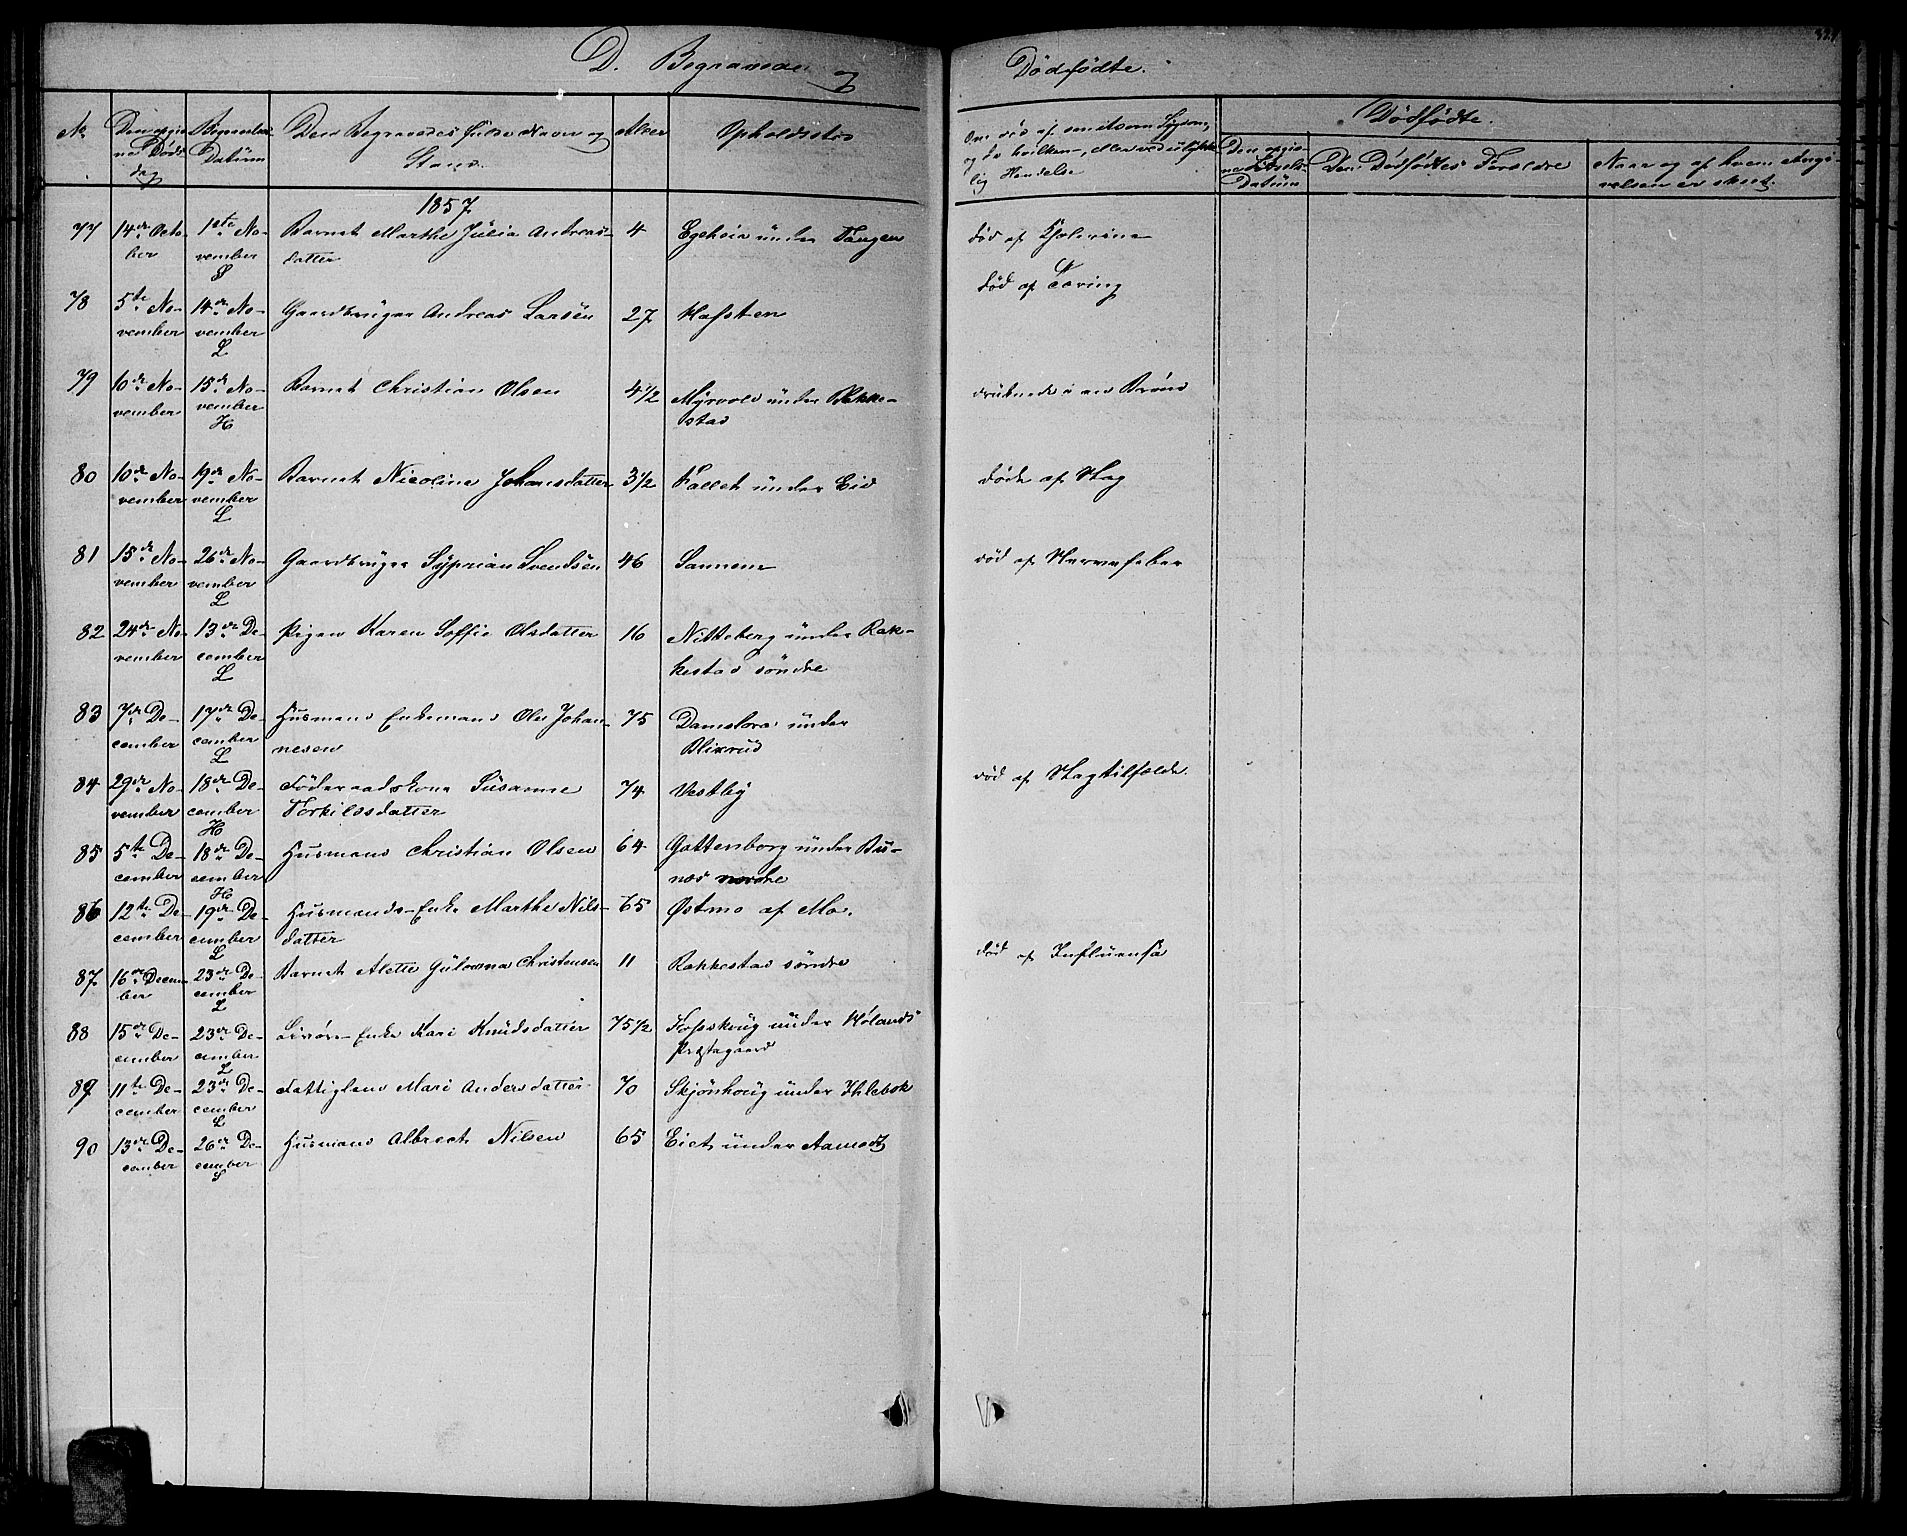 D. Begravede og
Dødfødte.
No
Den opgivne Dødsdag
Begravelses Datum
Den Begravedes fulde Navn og Stand
Alder
Opholdssted
Om død af smitsom Sygdom, og da hvilken, eller ved ulykkelig Hendelse
Dødfødte.
Den opgivne Fødsels Datum
Den Dødfødtes Forældre
Naar og af hvem Angivelsen er skeet.
1857
77 14de October 1ste November S Barnet Marthe Julia Andreasdatter 4 Egeheia under Tangen død af Kolerine
78 5te November 14de November L Gaardbruger Andreas Larsen 27 Hafsten død af Tæring
79 10de November 15de November H Barnet Christian Olsen 4 1/2 Myrvold under Rakkestad druknede i en Brønd
80 10de November 19de November L Barnet Nicoline Johansdatter 3 1/2 Fallet under Eid døde af Slag
81 15de November 26de November L Gaardbruger Syprian Svendsen 46 Sannem død af Nervefeber
82 24de November 13de December L Pigen Karen Soffie Olsdatter 16 Nitteberg under Rakkestad søndre
83 7de December 17de December L Husmand Enkemand Ole Johannesen 75 Damslora under Blixrud
84 29de November 18de December H Føderaadskone Susanne Torkilsdatter 74 Vestby død af Slagtilfælde.
85 5te December 18de December H Husmand Christian Olsen 64 Gottenborg under Bunes nordre
86 12te December 19de December L Husmands-Enke Marthe Nilsdatter 65 Østmo af Mo.
87 16de December 23de December L Barnet Alette Gulovna Christensen 11 Rakkestad søndre død af Influensa
88 15de December 23de December L Livøre Enke Kari Knudsdatter 75 1/2 Fosskoug under Hølands Præstegaard
89 11te December 23de December L Fattiglem Mari Andersdatter 70 Skjønhoug under Ihlebek
90 13de December 26de December S Husmand Albrecht Nilsen 65 Eiet under Aamodt